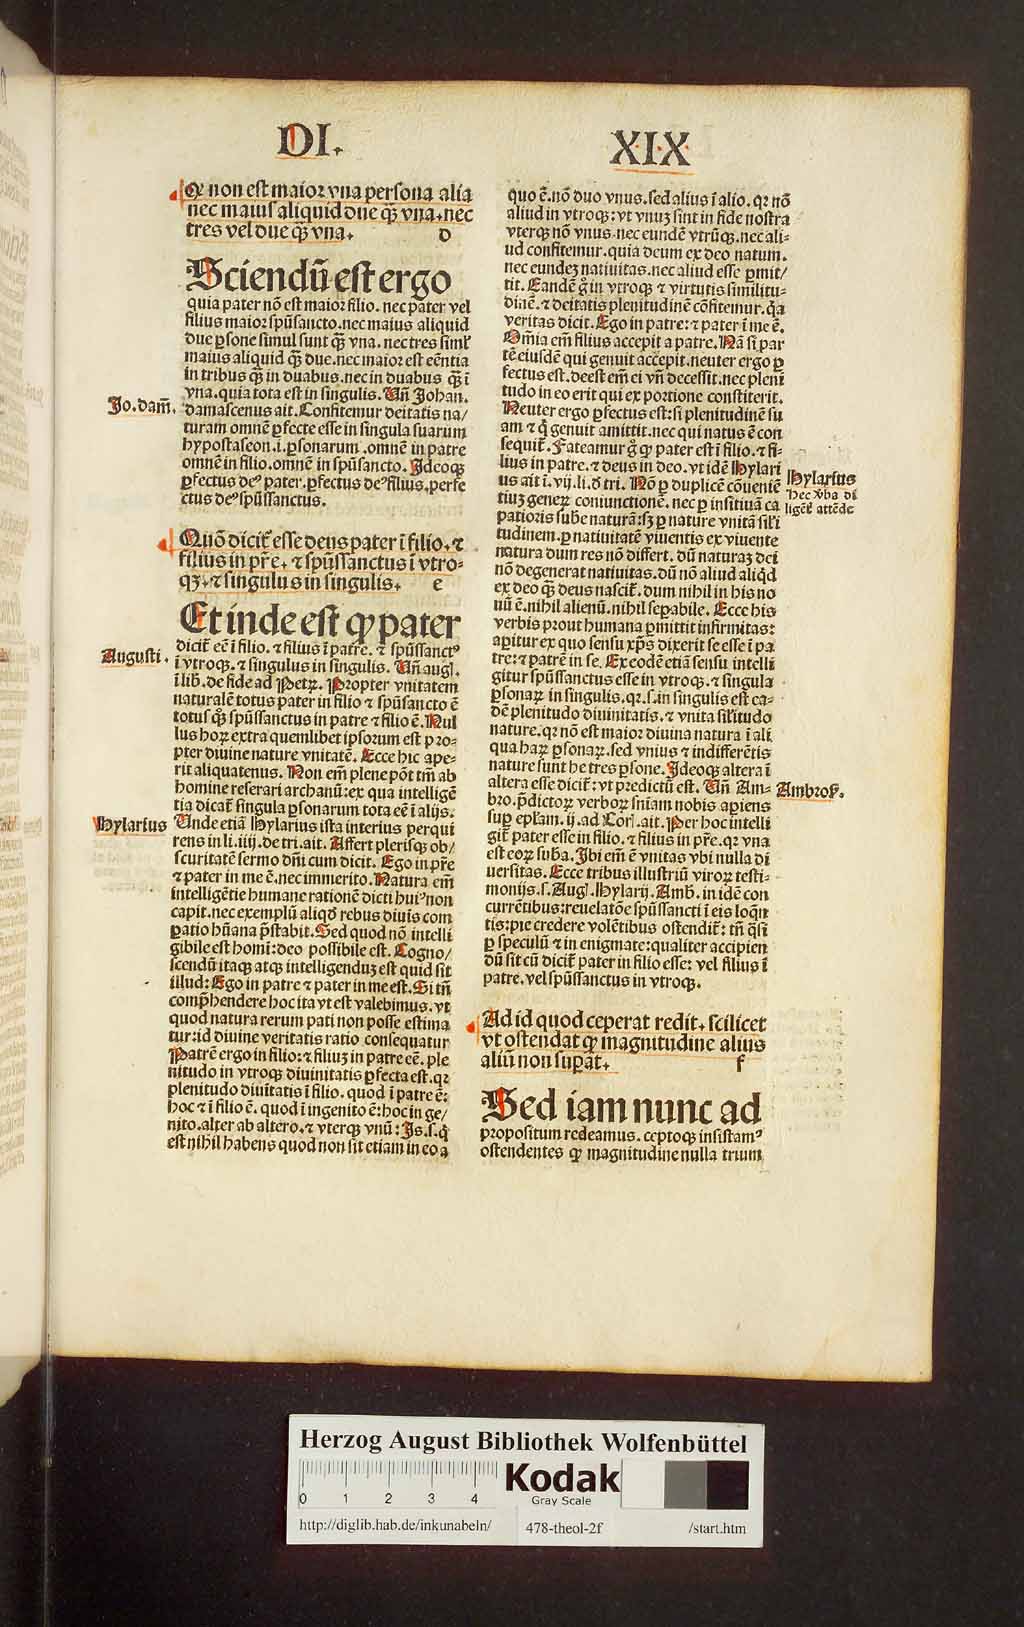 DI.
XIX
Qꝙ non est maior vna persona alia
nec maius aliquid due q̃ꝫ vna. nec
tres vel due q̃ꝫ vna. D
Sciendũ est ergo
quia pater nõ est maior filio. nec pater vel
filius maior spũsancto. nec maius aliquid
due ꝑsone simul sunt q̃ꝫ vna. nec tres simĩ
maius aliquid q̃ꝫ due. nec maior est eẽntia
in tribus q̃ꝫ in duabus. nec in duabus q̃ꝫ ĩ
vna. quia tota est in singulis. Vñ Johan.
Jo. dam̃.
damascenus ait. Confitemur deitatis na/
turam omnẽ ꝑfecte esse in singula suarum
hypostaseon. i. ꝑsonarum. omnẽ in patre
omnẽ in filio. omnẽ in spũsancto. Ideoqꝫ
ꝑfectus deꝰ pater. ꝑfectus deꝰ filius. perfe
ctus deꝰ spũssanctus.
Quõ dicit̃ esse deus pater ĩ filio. ⁊
filius in pr̃e. ⁊ spũssanctus ĩ vtro-
qꝫ. ⁊ singulus in singulis. e
Et inde est ꝙ pater
dicit̃ eẽ ĩ filio. ⁊ filius ĩ patre. ⁊ spũssanctꝰ
Augusti.
ĩ vtroqꝫ. ⁊ singulus in singulis. Vñ augĩ.
ĩ lib. de fide ad Petꝝ. Propter vnitatem
naturalẽ totus pater in filio ⁊ spũsancto ẽ
totus q̃ꝫ spũssanctus in patre ⁊ filio ẽ. Nul
lus hoꝝ extra quemlibet ipsorum est pro-
pter diuine nature vnitatẽ. Ecce hic ape-
rit aliquatenus. Non em̃ plene põt tm̃ ab
homine reserari archanũ: ex qua intelligẽ
tia dicat̃ singula ꝑsonarum tota eẽ ĩ alijs.
Hylarius
Vnde etiã Hylarius ista interius perqui
rens in li. iiij. de tri. ait. Affert plerisqꝫ ob/
scuritatẽ sermo dñi cum dicit. Ego in pr̃e
⁊ pater in me ẽ. nec immerito. Natura em̃
intelligẽtie humane rationẽ dicti huiꝰ non
capit. nec exemplũ aliqd̃ rebus diuis com
ꝑatio hũana p̃stabit. Sed quod nõ intelli
gibile est homi: deo possibile est. Cogno/
scendũ itaqꝫ atqꝫ intelligenduꝫ est quid sit
illud: Ego in patre ⁊ pater in me est. Si tñ
comp̃hendere hoc ita vt est valebimus. vt
quod natura rerum pati non posse estima
tur: id diuine veritatis ratio consequatur
Patrẽ ergo in filio: ⁊ filiuꝫ in patre eẽ. ple
nitudo in vtroqꝫ diuinitatis ꝑfecta est. qꝛ
plenitudo diuĩtatis ĩ filio. quod ĩ patre ẽ:
hoc ⁊ ĩ filio ẽ. quod ĩ ingenito ẽ: hoc in ge/
nito. alter ab altero. ⁊ vterqꝫ vnũ: Is. s. q̃
est nihil habens quod non sit etiam in eo a
quo ẽ. nõ duo vnus. sed alius ĩ alio. qꝛ nõ
aliud in vtroqꝫ: vt vnuꝫ sint in fide nostra
vterqꝫ nõ vnus. nec eundẽ vtrũqꝫ. nec ali-
ud confitemur. quia deum ex deo natum.
nec eundeꝫ natiuitas. nec aliud esse ꝑmit/
tit. Eandẽ g̃ in vtroqꝫ ⁊ virtutis similitu-
dinẽ. ⁊ deitatis plenitudinẽ cõfitemur. q̃a
veritas dicit. Ego in patre: ⁊ pater ĩ me ẽ.
Om̃ia em̃ filius accepit a patre. Nã si par
tẽ eiusdẽ qui genuit accepit. neuter ergo ꝑ
fectus est. deest em̃ ei vñ decessit. nec pleni
tudo in eo erit qui ex portione constiterit.
Neuter ergo ꝑfectus est: si plenitudinẽ su
am ⁊ q̃ genuit amittit. nec qui natus ẽ con
sequit̃. Fateamur g̃ ꝙ pater est ĩ filio. ⁊ fi-
lius in patre. ⁊ deus in deo. vt idẽ Hylari
Hylarius
us ait ĩ. vij. li. d̃ tri. Nõ ꝑ duplicẽ cõueniẽ
hec v̾ba di
tiuꝫ geneꝝ coniunctionẽ. nec ꝑ insitiuã ca
ligẽt̃ attẽde
patioris sube naturã: sꝫ ꝑ nature vnitã sili
tudinem. ꝑ natiuitatẽ viuentis ex viuente
natura dum res nõ differt. dũ naturaꝫ dei
nõ degenerat natiuitas. dũ nõ aliud aliq̃d
ex deo q̃ꝫ deus nascit̃. dum nihil in his no
uũ ẽ. nihil alienũ. nihil seꝑabile. Ecce his
verbis prout humana ꝑmittit infirmitas:
aꝑitur ex quo sensu xp̃s dixerit se esse ĩ pa
tre: ⁊ patrẽ in se. Ex eodẽ etiã sensu intelli
gitur spũssanctus esse in vtroqꝫ. ⁊ singula
ꝑsonaꝝ in singulis. qꝛ. s. in singulis est ea-
dẽ plenitudo diuinitatis. ⁊ vnita silĩtudo
nature. qꝛ nõ est maior diuina natura ĩ ali
qua haꝝ ꝑsonaꝝ. sed vnius ⁊ indifferẽtis
nature sunt he tres ꝑsone. Ideoqꝫ altera ĩ
altera esse dicit̃: vt predictũ est. Vñ Am-
Ambros̃.
bro. p̃dictoꝝ verboꝝ sñiam nobis aꝑiens
suꝑ epĩam. ij. ad Corĩ. ait. Per hoc intelli
git̃ pater esse in filio. ⁊ filius in pr̃e. qꝛ vna
est eoꝝ suba. Ibi em̃ ẽ vnitas vbi nulla di
uersitas. Ecce tribus illustriũ viroꝝ testi-
monijs. s. Augĩ. Hylarij. Amb. in idẽ con
currẽtibus: reuelatõe spũssancti ĩ eis loq̃n
tis: pie credere volẽtibus ostendit̃: tñ q̃si
ꝑ speculũ ⁊ in enigmate: qualiter accipien
dũ sit cũ dicit̃ pater in filio esse: vel filius ĩ
patre. vel spũssanctus in vtroqꝫ.
Ad id quod ceperat redit. scilicet
vt ostendat ꝙ magnitudine alius
aliũ non suꝑat. f
Sed iam nunc ad
propositum redeamus. ceptoqꝫ insistamꝰ
ostendentes ꝙ magnitudine nulla trium
Herzog August Bibliothek Wolfenbüttel
0 1 2 3 4
Kodak
Gray Scale
http://diglib.hab.de/inkunabeln/
478-theol-2f
/start.htm